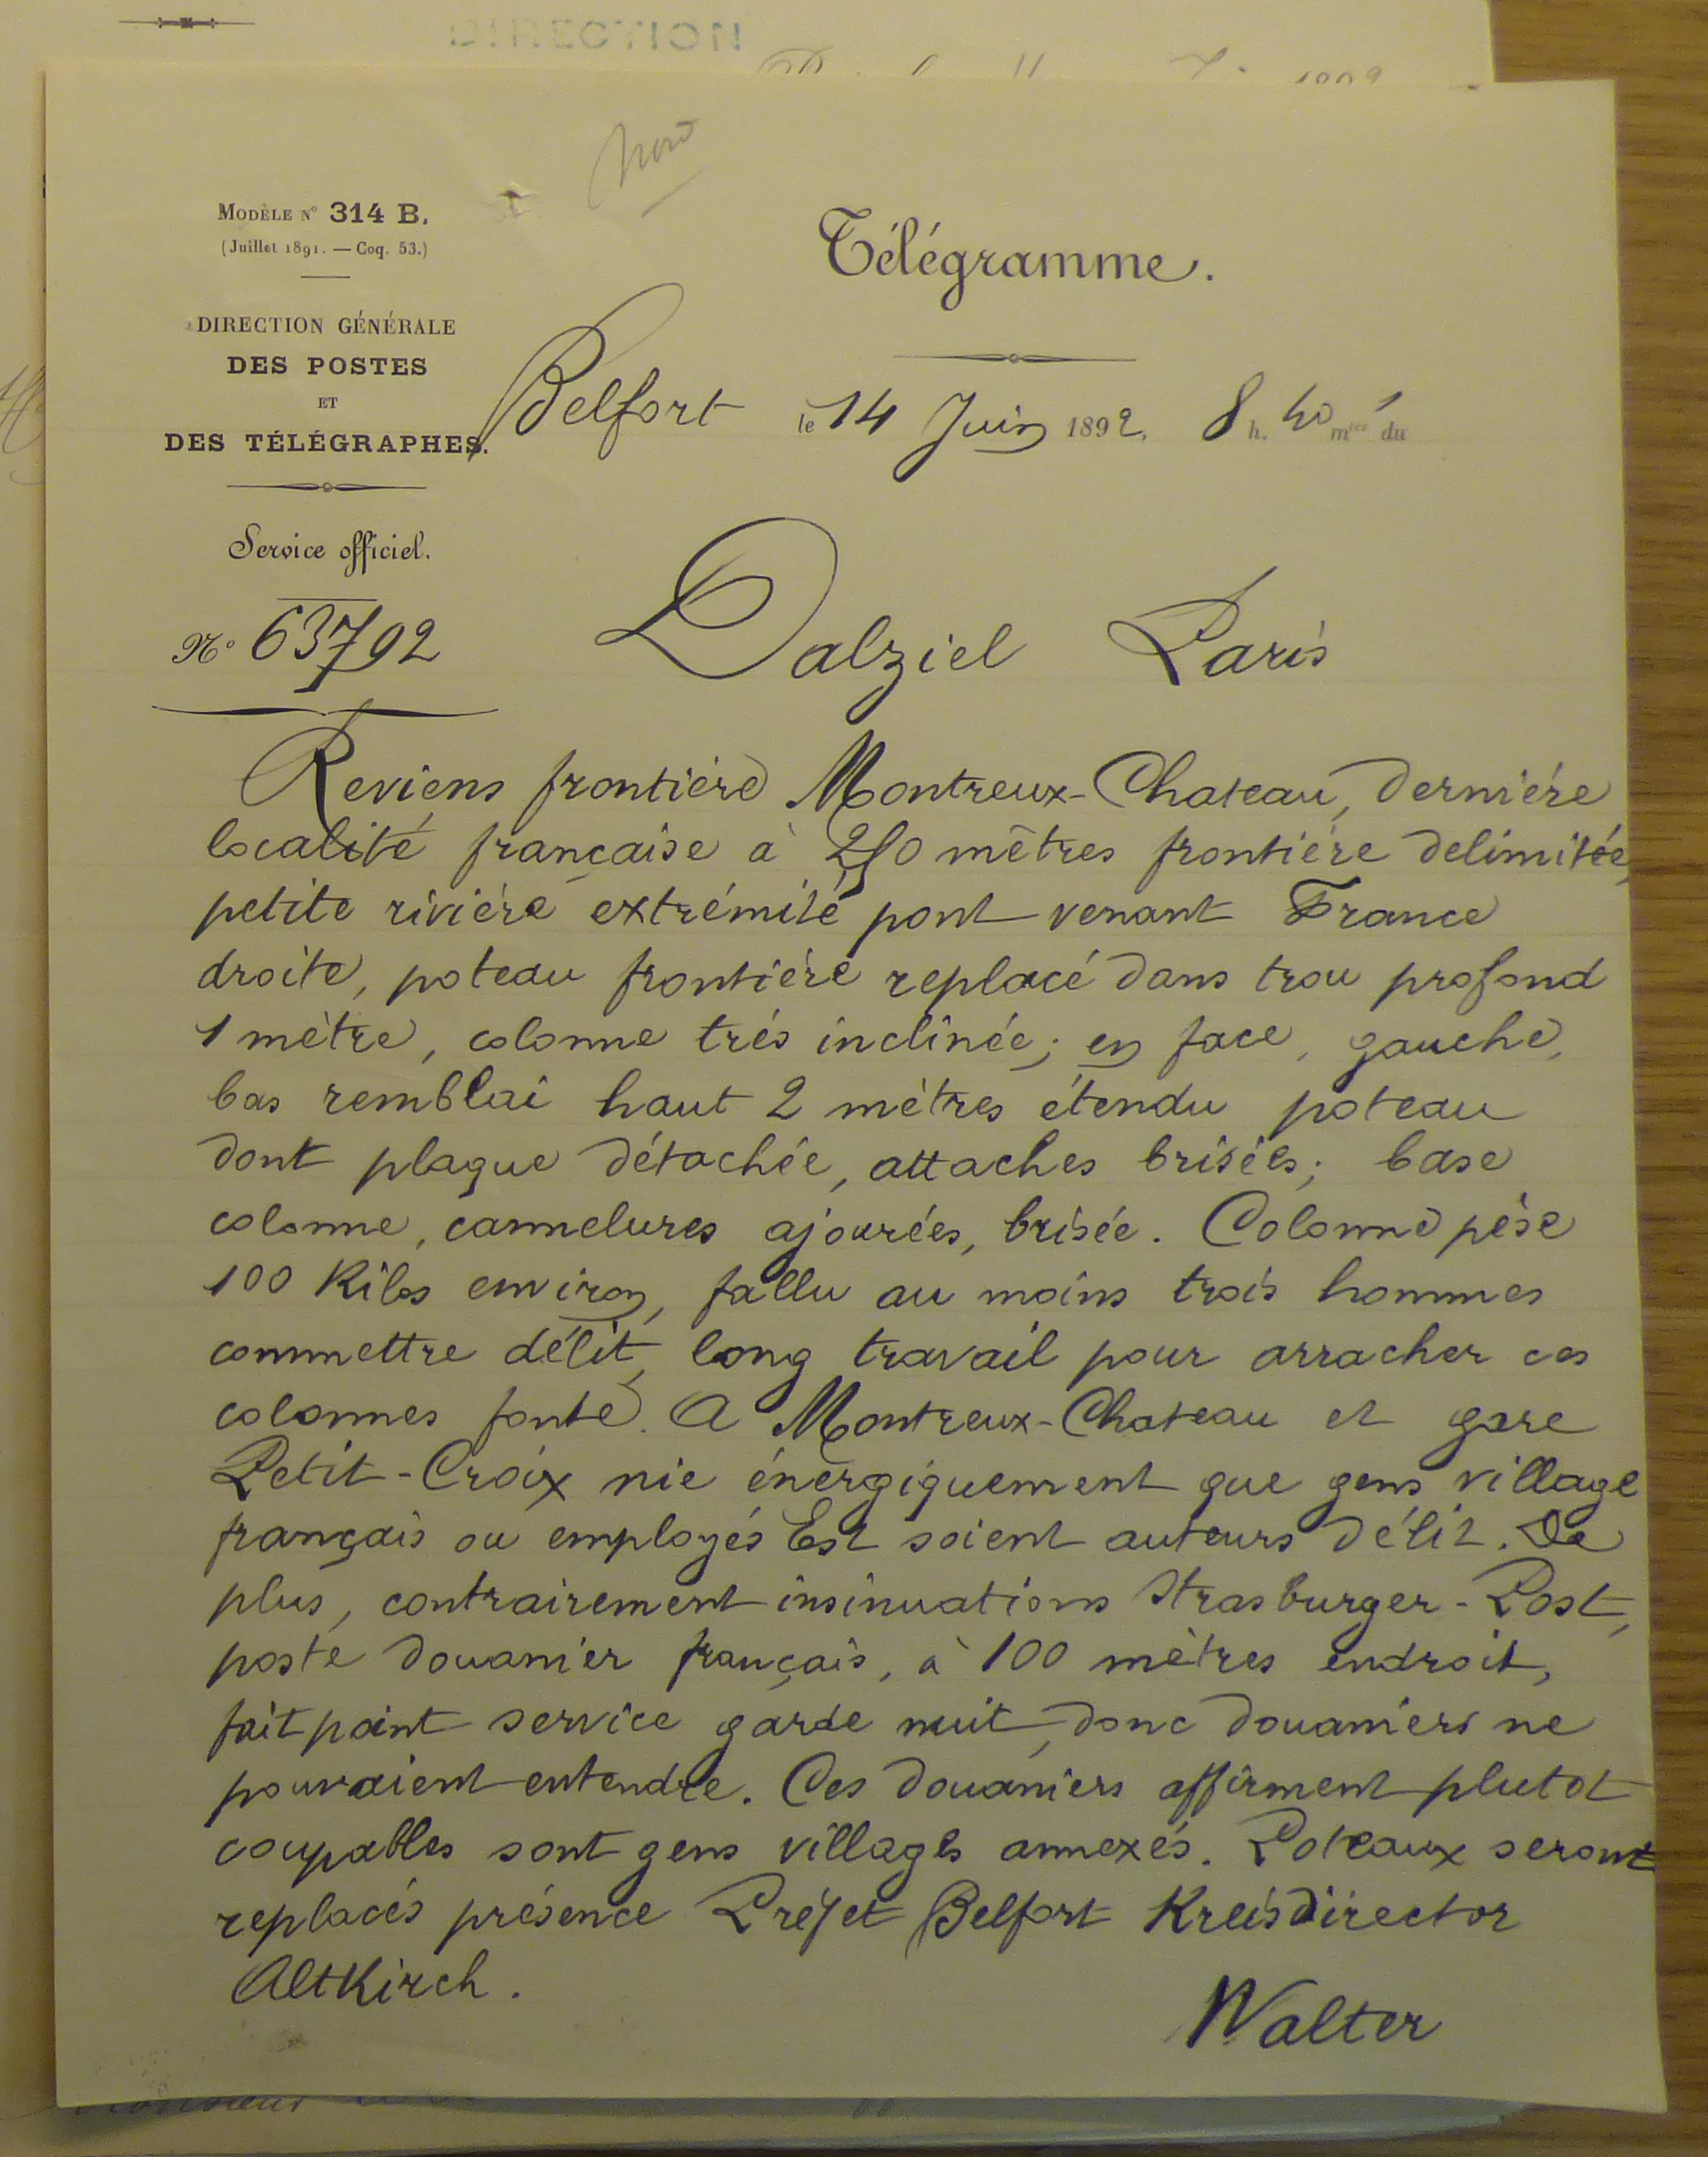 DIRECTION
Modèle N° 314 B.
(Juillet 1891. — Coq. 53.)
DIRECTION GÉNÉRALE
DES POSTES
ET
DES TÉLÉGRAPHES.
Service officiel.
N° 63792
Télégramme.
Belfort le 14 Juin 1892, 8 h. 40 mtes du
Dalziel Paris
Reviens frontière Montreux-Chateau, dernière
localité française à 250 mètres frontière delimitée,
petite rivière extrémité pont venant France
droite, poteau frontière replacé dans trou profond
1 mètre, colonne très inclinée; en face, gauche,
bas remblai haut 2 mètres étendu poteau
dont plaque détachée, attaches brisées; base
colonne, cannelures ajourées, brisée. Colonne pèse
100 Kilos environ, fallu au moins trois hommes
commettre délit, long travail pour arracher ces
colonnes fonte. A Montreux-Chateau et gare
Petit-Croix nie énergiquement que gens village
français ou employés Est soient auteurs délit. De
plus, contrairement insinuations Strasburger-Post,
poste douanier français, à 100 mètres endroit,
fait point service garde nuit, donc douaniers ne
pouvaient entendre. Ces douaniers affirment plutot
coupables sont gens villages annexés. Poteaux seront
replacés présence Préfet Belfort Kreisdirector
Altkirch.
Walter